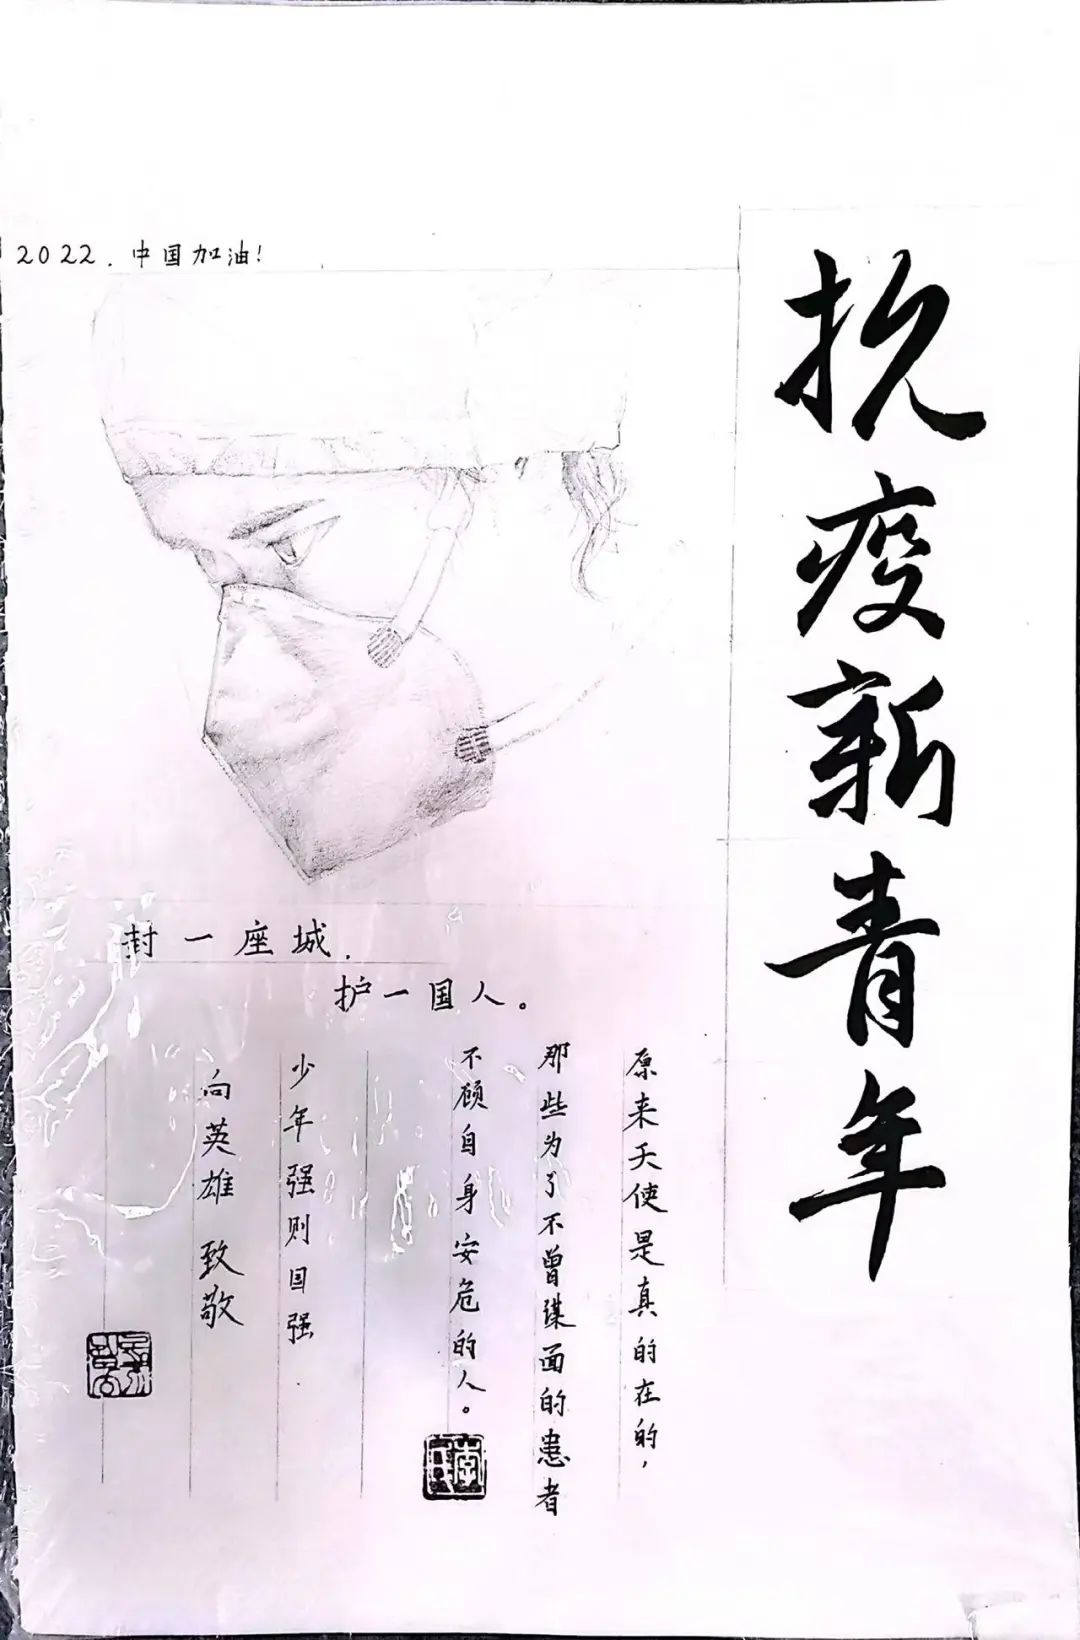 2022.中国加油!
抗疫新青年
封一座城.
护一国人。
原来天使是真的在的,
那些为了不曾谋面的患者
不顾自身安危的人。
少年强则国强
向英雄 致敬